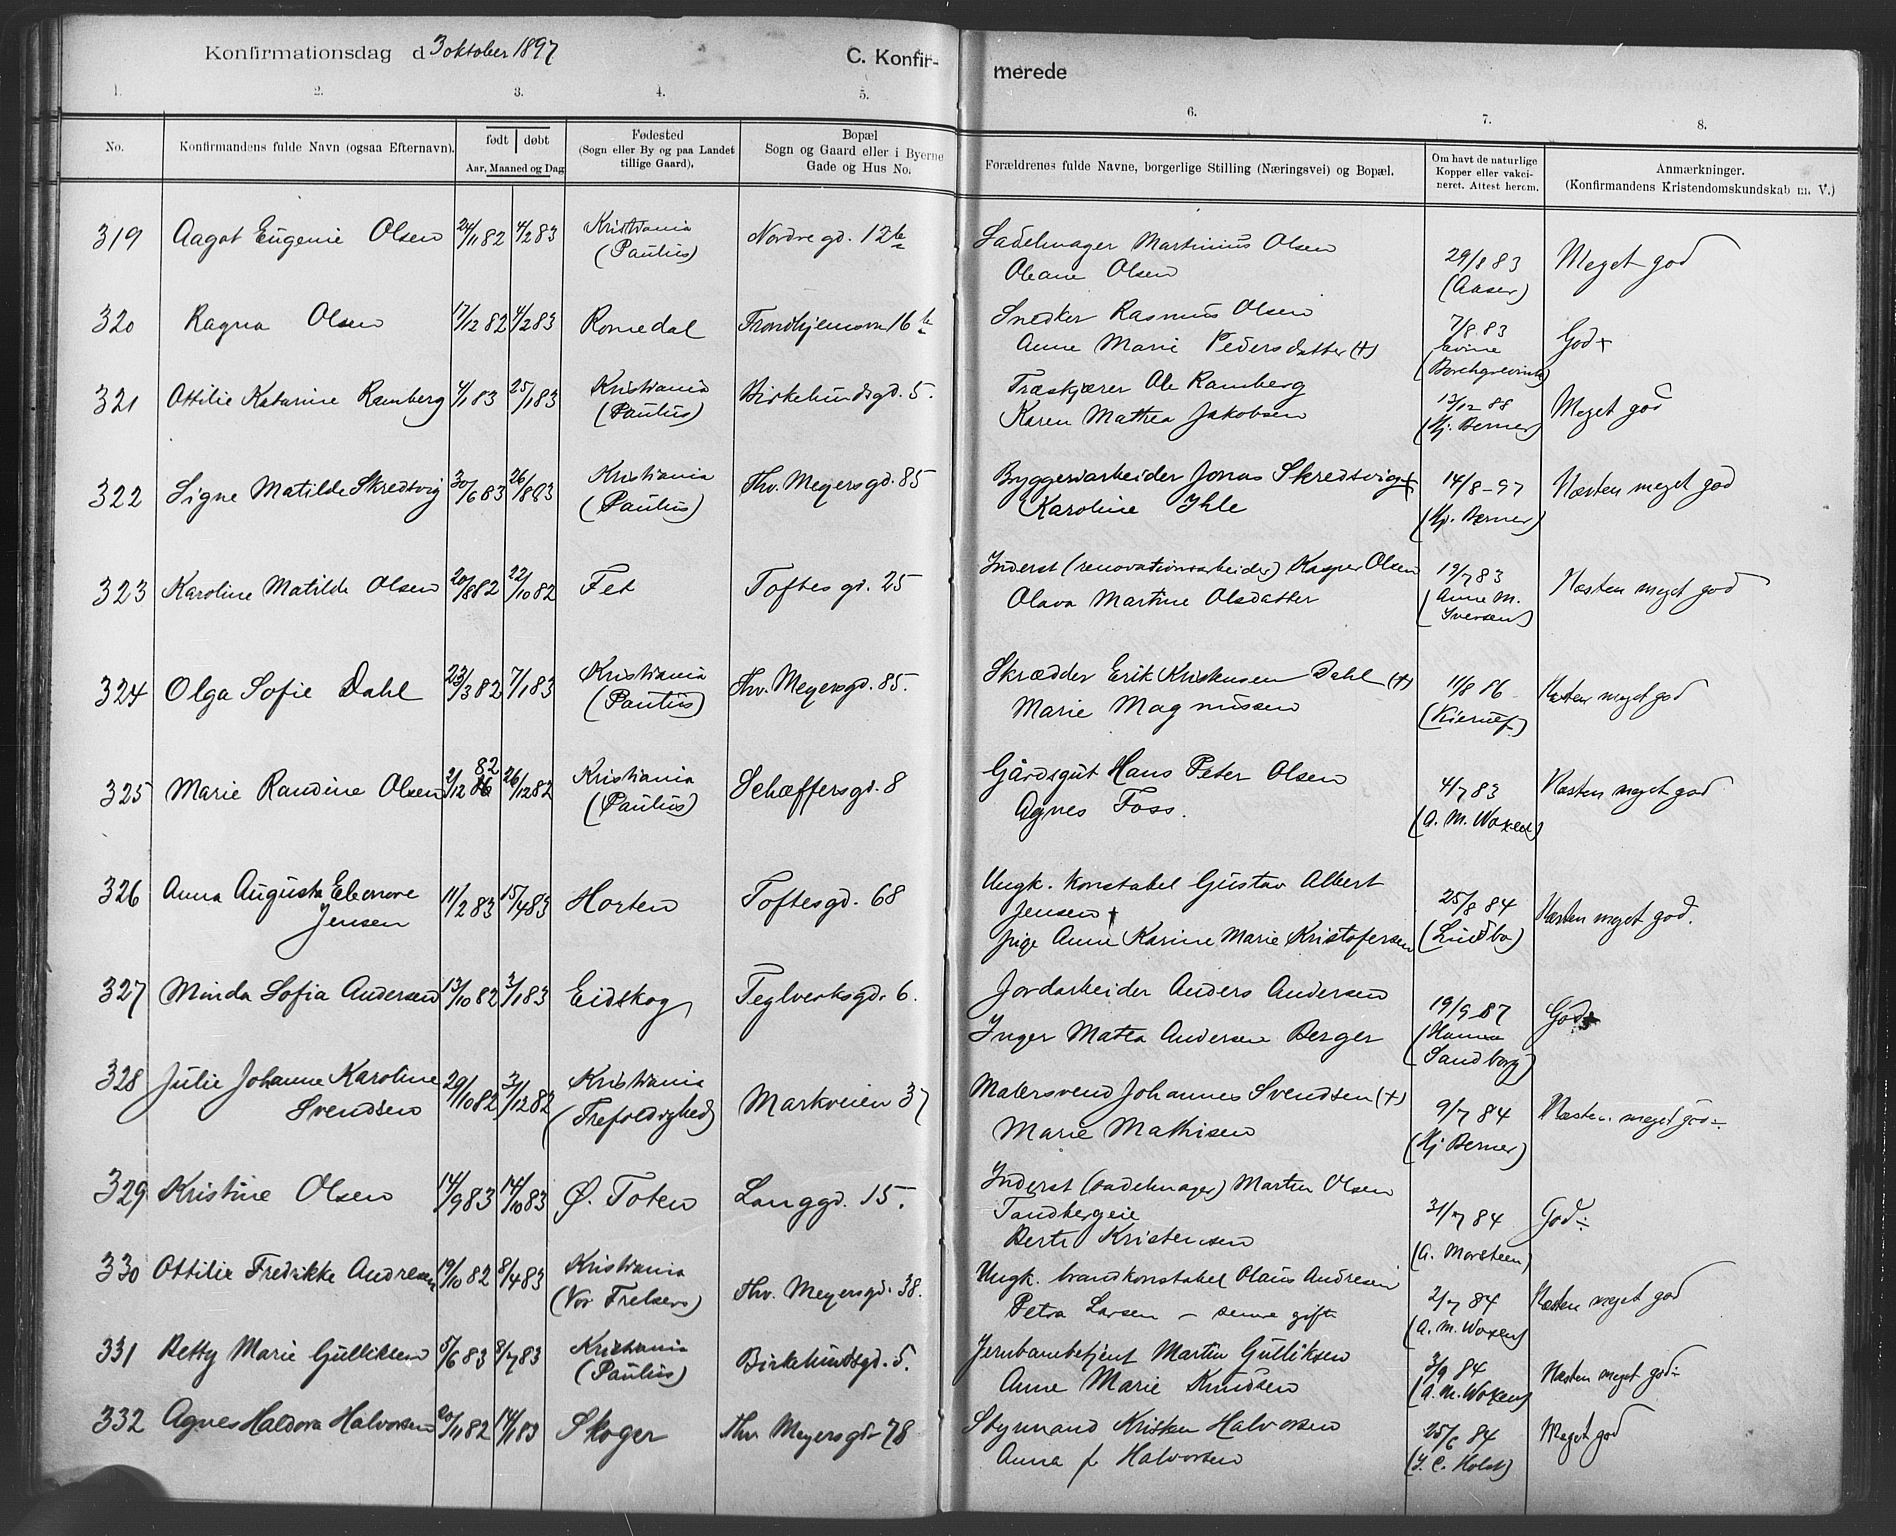 Konfirmationsdag d 3 oktober 1897
C. Konfir-
merede
1. 2. 3. 4. 5. 6. 7. 8.
No.
Konfirmandens fulde Navn (ogsaa Efternavn).
født døbt
Aar, Maaned og Dag
Fødested
(Sogn eller By og paa Landet
tillige Gaard).
Bopæl
Sogn og Gaard eller i Byerne
Gade og Hus No.
Forældrenes fulde Navne, borgerlige Stilling (Næringsvei) og Bopæl.
Om havt de naturlige
Kopper eller vakci-
neret. Attest herom.
Anmærkninger.
(Konfirmandens Kristendomskundskab m. V.)
319 Aagot Eugenie Olsen 24/11 82 4/2 83 Kristiania
(Paulus)
Nordre gd. 12b
Sadelmager Martinius Olsen
Oleane Olsen
29/8 83
(Aaser)
Meget god
320 Ragna Olsen 17/12 82 4/2 83 Romedal Trondhjemsvn 16b
Snedker Rasmus Olsen
Anne Marie Pedersdatter (+)
7/8 83
(Borchgrevink)
God+
321 Ottilie Katarine Ramberg 4/1 83 25/1 83 Kristiania
(Paulus)
Birkelundsgd. 5.
Træskjærer Ole Ramberg
Karen Mathea Jakobsen
13/12 88
(Hj. Berner)
Meget god
322 Signe Matilde Skredsvig 30/6 83 26/8 83 Kristiania
(Paulus)
Thv. Meyersgd. 85
Bryggeriarbeider Jonas Skredsvig+
Karoline Ihle
14/8-97
(Hj. Berner)
Næsten meget god
323 Karoline Matilde Olsen 20/8 82 22/10 82 Fet Toftesgd. 25
Inderst (renovationsarbeider) Kasper Olsen
Olava Martine Olsdatter
19/7 83
(Anne M.
Iversen)
Næsten meget god
324 Olga Sofie Dahl 23/3 82 7/1 83 Kristiania
(Paulus)
Thv. Meyersgd. 85.
Skrædder Erik Kristensen Dahl (+)
Marie Magnussen
11/8 86
(Kierulf)
Næsten meget god
325 Marie Randine Olsen 2/12 82 26/12 82 Kristiania
(Paulus)
Schæffersgd. 8
Gårdsgut Hans Peter Olsen
Agnes Foss.
4/7 83
(A. M. Woxen)
Næsten meget god
326 Anna Augusta Eleonore
Jensen
11/2 83 15/4 83 Horten Toftesgd. 68
Ungk. Konstabel Gustav Albert
Jensen +
pige Anne Karine Marie Kristofersen
25/8 84
(Lindbo)
Næsten meget god.
327 Minda Sofia Andersen 13/10 82 3/1 83 Eidskog Teglverksgd. 6.
Jordarbeider Anders Andersen
Inger Matea Andersen Berger
19/9 87
(Hanna
Sandborg)
God+
328 Julie Johanne Karoline
Svendsen
29/10 82 3/12 82 Kristiania
(Trefoldighed)
Markveien 37
Malersvend Johannes Svendsen (+)
Marie Mathisen
9/7 84
(Hj Berner)
Næsten meget god÷
329 Kristine Olsen 14/9 83 14/10 83 Ø. Toten Langgd. 15.
Inderst (sadelmager) Martin Olsen
Tandbergeie
Berte Kristensen
31/7 84
(A. Morsteen)
God÷
330 Ottilie Fredrikke Andresen 19/10 82 8/4 83 Kristiania
(Vor Frelsers)
Thv. Meyersgd. 38.
Ungk. brandkonstabel Olaus Andresen
Petra Larsen – senne gift
2/7 84
(A. M. Woxen)
Næsten meget god
331 Betty Marie Gulliksen 5/6 83 8/7 83 Kristiania
(Paulus)
Birkelundsgd. 5.
Jernbanebetjent Martin Gulliksen
Anne Marie Knudsen
3/9 84
(A. M. Woxen)
Næsten meget god÷
332 Agnes Haldora Halvorsen 20/11 82 14/1 83 Skoger Thv Meyersgd 78
Styrmand Kristen Halvorsen
Anna f. Halvorsen
25/6 84
(J. C. Holst)
Meget god